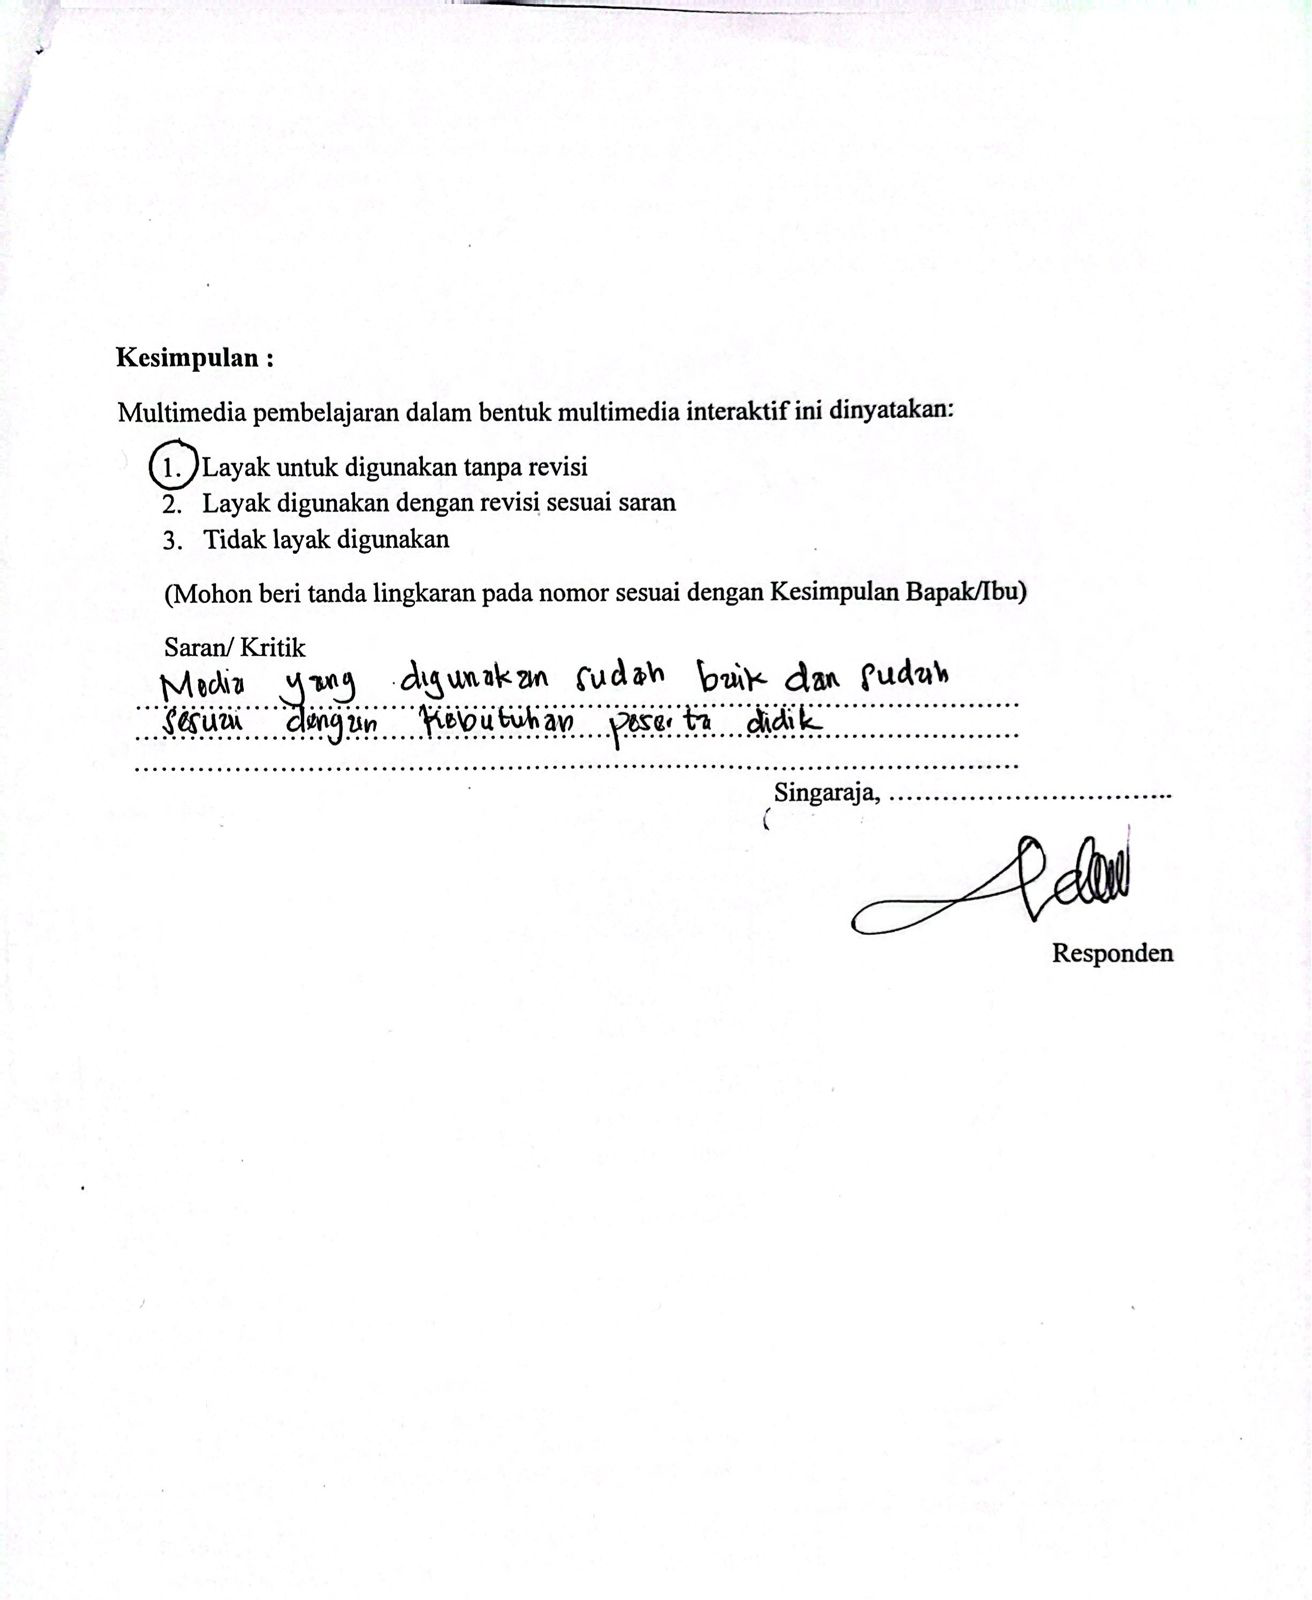 Kesimpulan :
Multimedia pembelajaran dalam bentuk multimedia interaktif ini dinyatakan:
1. Layak untuk digunakan tanpa revisi
2. Layak digunakan dengan revisi sesuai saran
3. Tidak layak digunakan
(Mohon beri tanda lingkaran pada nomor sesuai dengan Kesimpulan Bapak/Ibu)
Saran/ Kritik
Media yang digunakan sudah baik dan sudah
sesuai dengan kebutuhan peserta didik
Singaraja, ................................
Responden